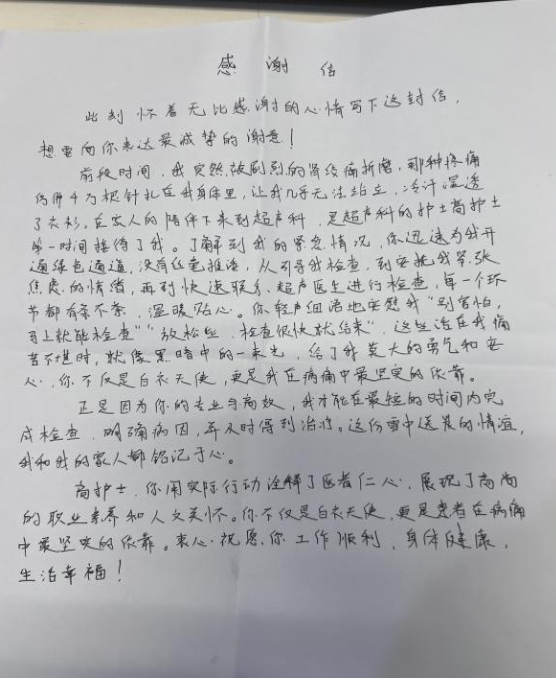 感谢信
此刻怀着无比感谢的心情写下这封信，
想要向你表达最诚挚的谢意！
前段时间，我突然被剧烈的肾绞痛折磨，那种疼痛
仿佛千万根针扎在我身体里，让我几乎无法站立，冷汗湿透
了衣衫。在家人的陪伴下来到超声科，是超声科的护士高护士
第一时间接待了我。了解到我的紧急情况，你迅速为我开
通绿色通道，没有丝毫推诿，从引导我检查，到安抚我紧张
焦虑的情绪，再到快速联系超声医生进行检查，每一个环
节都有条不紊，温暖贴心。你轻声细语地安慰我“别害怕，
马上就能检查”“放松些，检查很快就结束”，这些话在我痛
苦不堪时，就像黑暗中的一束光，给了我莫大的勇气和安
心，你不仅是白衣天使，更是我在病痛中最坚实的依靠。
正是因为你的专业与高效，我才能在最短的时间内完
成检查，明确病因，并及时得到治疗。这份雪中送炭的情谊，
我和我的家人都铭记于心。
高护士，你用实际行动诠释了医者仁心，展现了高尚
的职业素养和人文关怀。你不仅是白衣天使，更是患者在病痛
中最坚实的依靠。衷心祝愿你工作顺利，身体健康，
生活幸福！